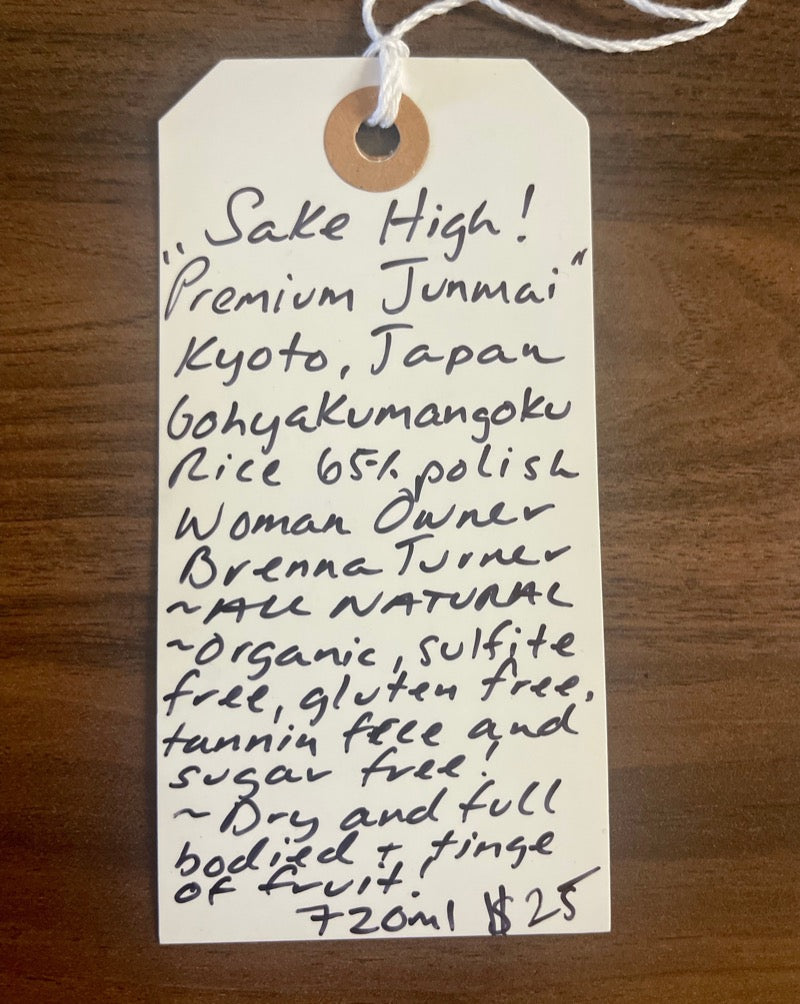 „Sake High!
Premium Junmai"
Kyoto, Japan
Gohyakumangoku
Rice 65% polish
Woman Owner
Brenna Turner
~ALL NATURAL
~Organic, sulfite
free, gluten free,
tannin free and
sugar free!
~Dry and full
bodied + tinge
of fruit!
720ml $25